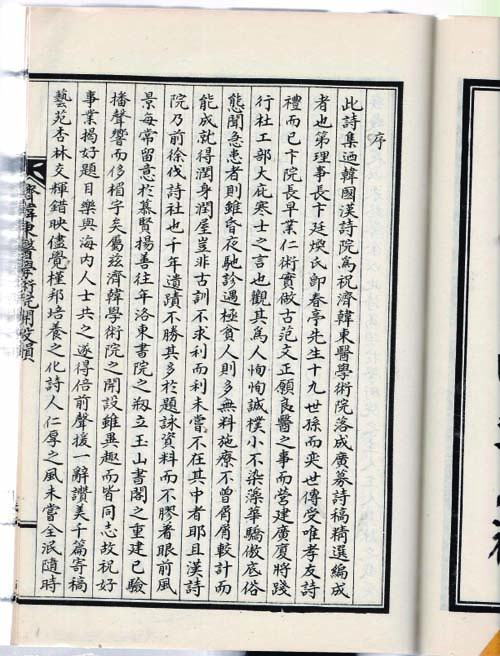 序
此詩集迺韓國漢詩院爲祝濟韓東醫學術院落成廣募詩稿精選編成
者也第理事長卞廷煥氏卽春亭先生十九世孫而奕世傳受唯孝友詩
禮而已卞院長早業仁術實倣古范文正願良醫之事而營建廣廈將踐
行杜工部大庇寒士之言也觀其爲人恂恂誠樸小不染藻華驕傲底俗
態聞急患者則雖昏夜馳診遇極貧人則多無料施療不曾屑屑較計而
能成就得潤身潤屋豈非古訓不求利而利未嘗不在其中者耶且漢詩
院乃前徐伐詩社也千年遺蹟不勝其多於題詠資料而不膠着眼前風
景每常留意於慕賢揚善往年洛東書院之刱立玉山書閣之重建已驗
播聲響而侈楣宇矣屬玆濟韓學術院之開設雖異趣而皆同志故祝好
事業揭好題目樂與海內人士共之遂得倍前聲援一辭讚美千篇寄稿
藝苑杏林交輝錯映儘覺槿邦培養之化詩人仁厚之風未嘗全泯隨時
濟韓東醫學術院開設頌